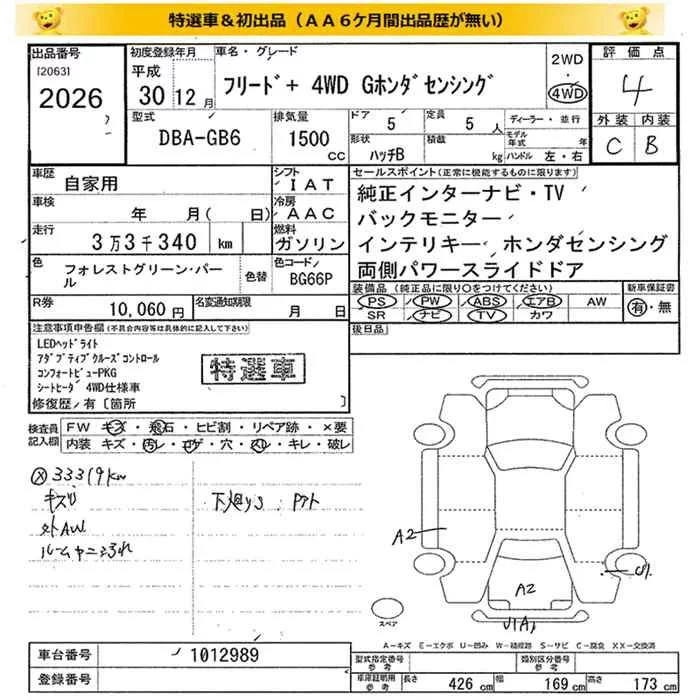 特選車&初出品(AA6ケ月間出品歴が無い)
出品番号 初度登録年月 車名・グレード 2WD・4WD 評価点
[2063] 2026 平成 30 12月 フリード+ 4WD Gホンダセンシング 4
型式 排気量 ドア 5 定員 5人 ディーラー・並行 外装 内装
DBA-GB6 1500 CC 形状 ハッチB 積載 kg モデル年式 年 ハンドル 左・右 C B
車歴 自家用 シフト IAT セールスポイント(正常に機能するものに限ります)
車検 年 月( 日) 冷房 AAC 純正インターナビ・TV
バックモニター
走行 3万3千340 km 燃料 ガソリン インテリキー ホンダセンシング
両側パワースライドドア
色 フォレストグリーン・パール 色替 色コード BG66P
装備品(純正品に限り○をつけてください) 新車保証書
PS PW ABS エアB AW 有・無
SR ナビ TV カワ
R券 10,060円 名変通知期限 月 日
後日品
注意事項申告欄(不具合内容等は具体的に記入して下さい)
LEDヘッドライト
アダプティブクルーズコントロール
コンフォートビューPKG
シートヒータ 4WD仕様車
特選車
修復歴/有[箇所 ]
検査員記入欄 FW キズ・飛石・ヒビ割・リペア跡・×要
内装 キズ・汚レ・コゲ・穴・スレ・キレ・破レ
33319km
キズ 下廻りS
外AW
A2
A2
スペア
A-キズ E-エクボ U-凹み W-補修跡 S-サビ C-腐食 XX-交換済
車台番号 1012989
登録番号
型式指定番号 参考 類別区分番号 参考
車庫証明用 参考 長さ 426 cm 幅 169 cm 高さ 173 cm